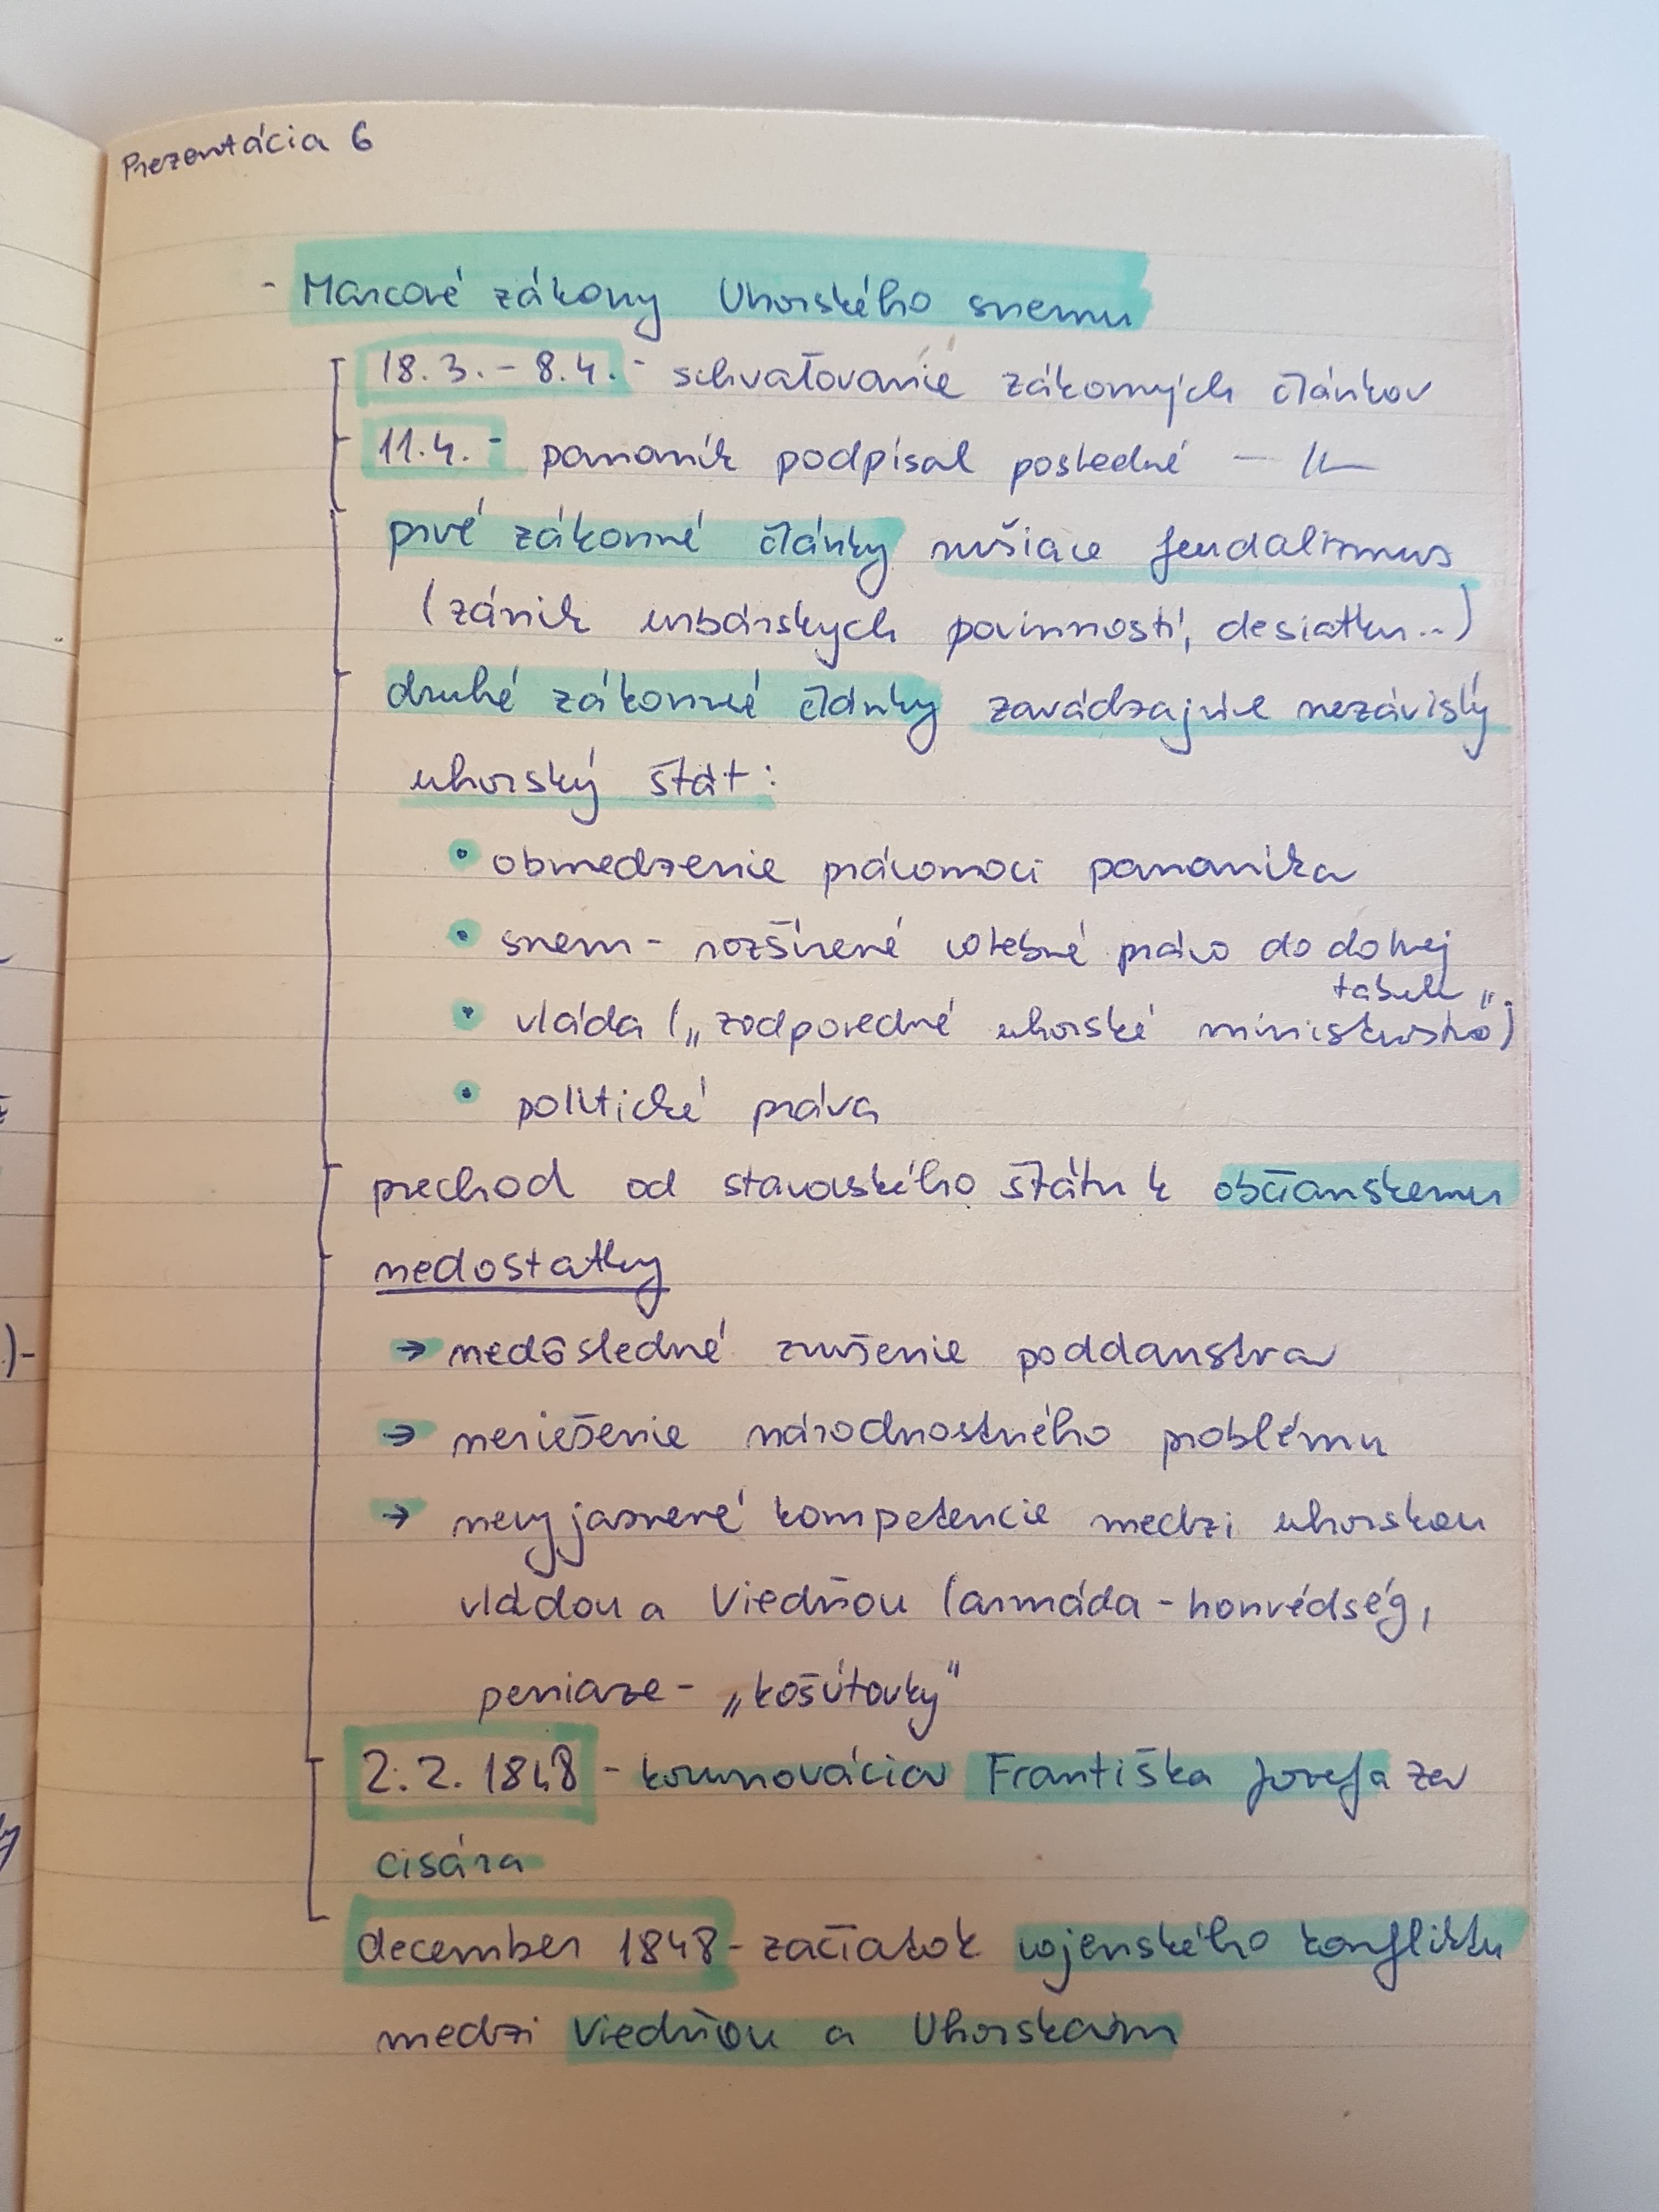 Prezentácia 6
- Marcové zákony Uhorského snemu
18.3. - 8.4. - schvaľovanie zákonných článkov
11.4. - panovník podpísal posledné - 〃 -
prvé zákonné články rušiace feudalizmus
(zánik urbárskych povinností, desiatku..)
druhé zákonné články zavádzajúce nezávislý
uhorský štát:
• obmedzenie právomoci panovníka
• snem - rozšírené volebné právo do dolnej
tabule
• vláda („zodpovedné uhorské ministerstvo")
• politické práva
prechod od stavovského štátu k občianskemu
nedostatky
→ nedôsledné zrušenie poddanstva
→ neriešenie národnostného problému
→ nevyjasnené kompetencie medzi uhorskou
vládou a Viedňou (armáda - honvédség,
peniaze - „košútovky"
2.2. 1848 - korunovácia Františka Jozefa za
cisára
december 1848 - začiatok vojenského konfliktu
medzi Viedňou a Uhorskom